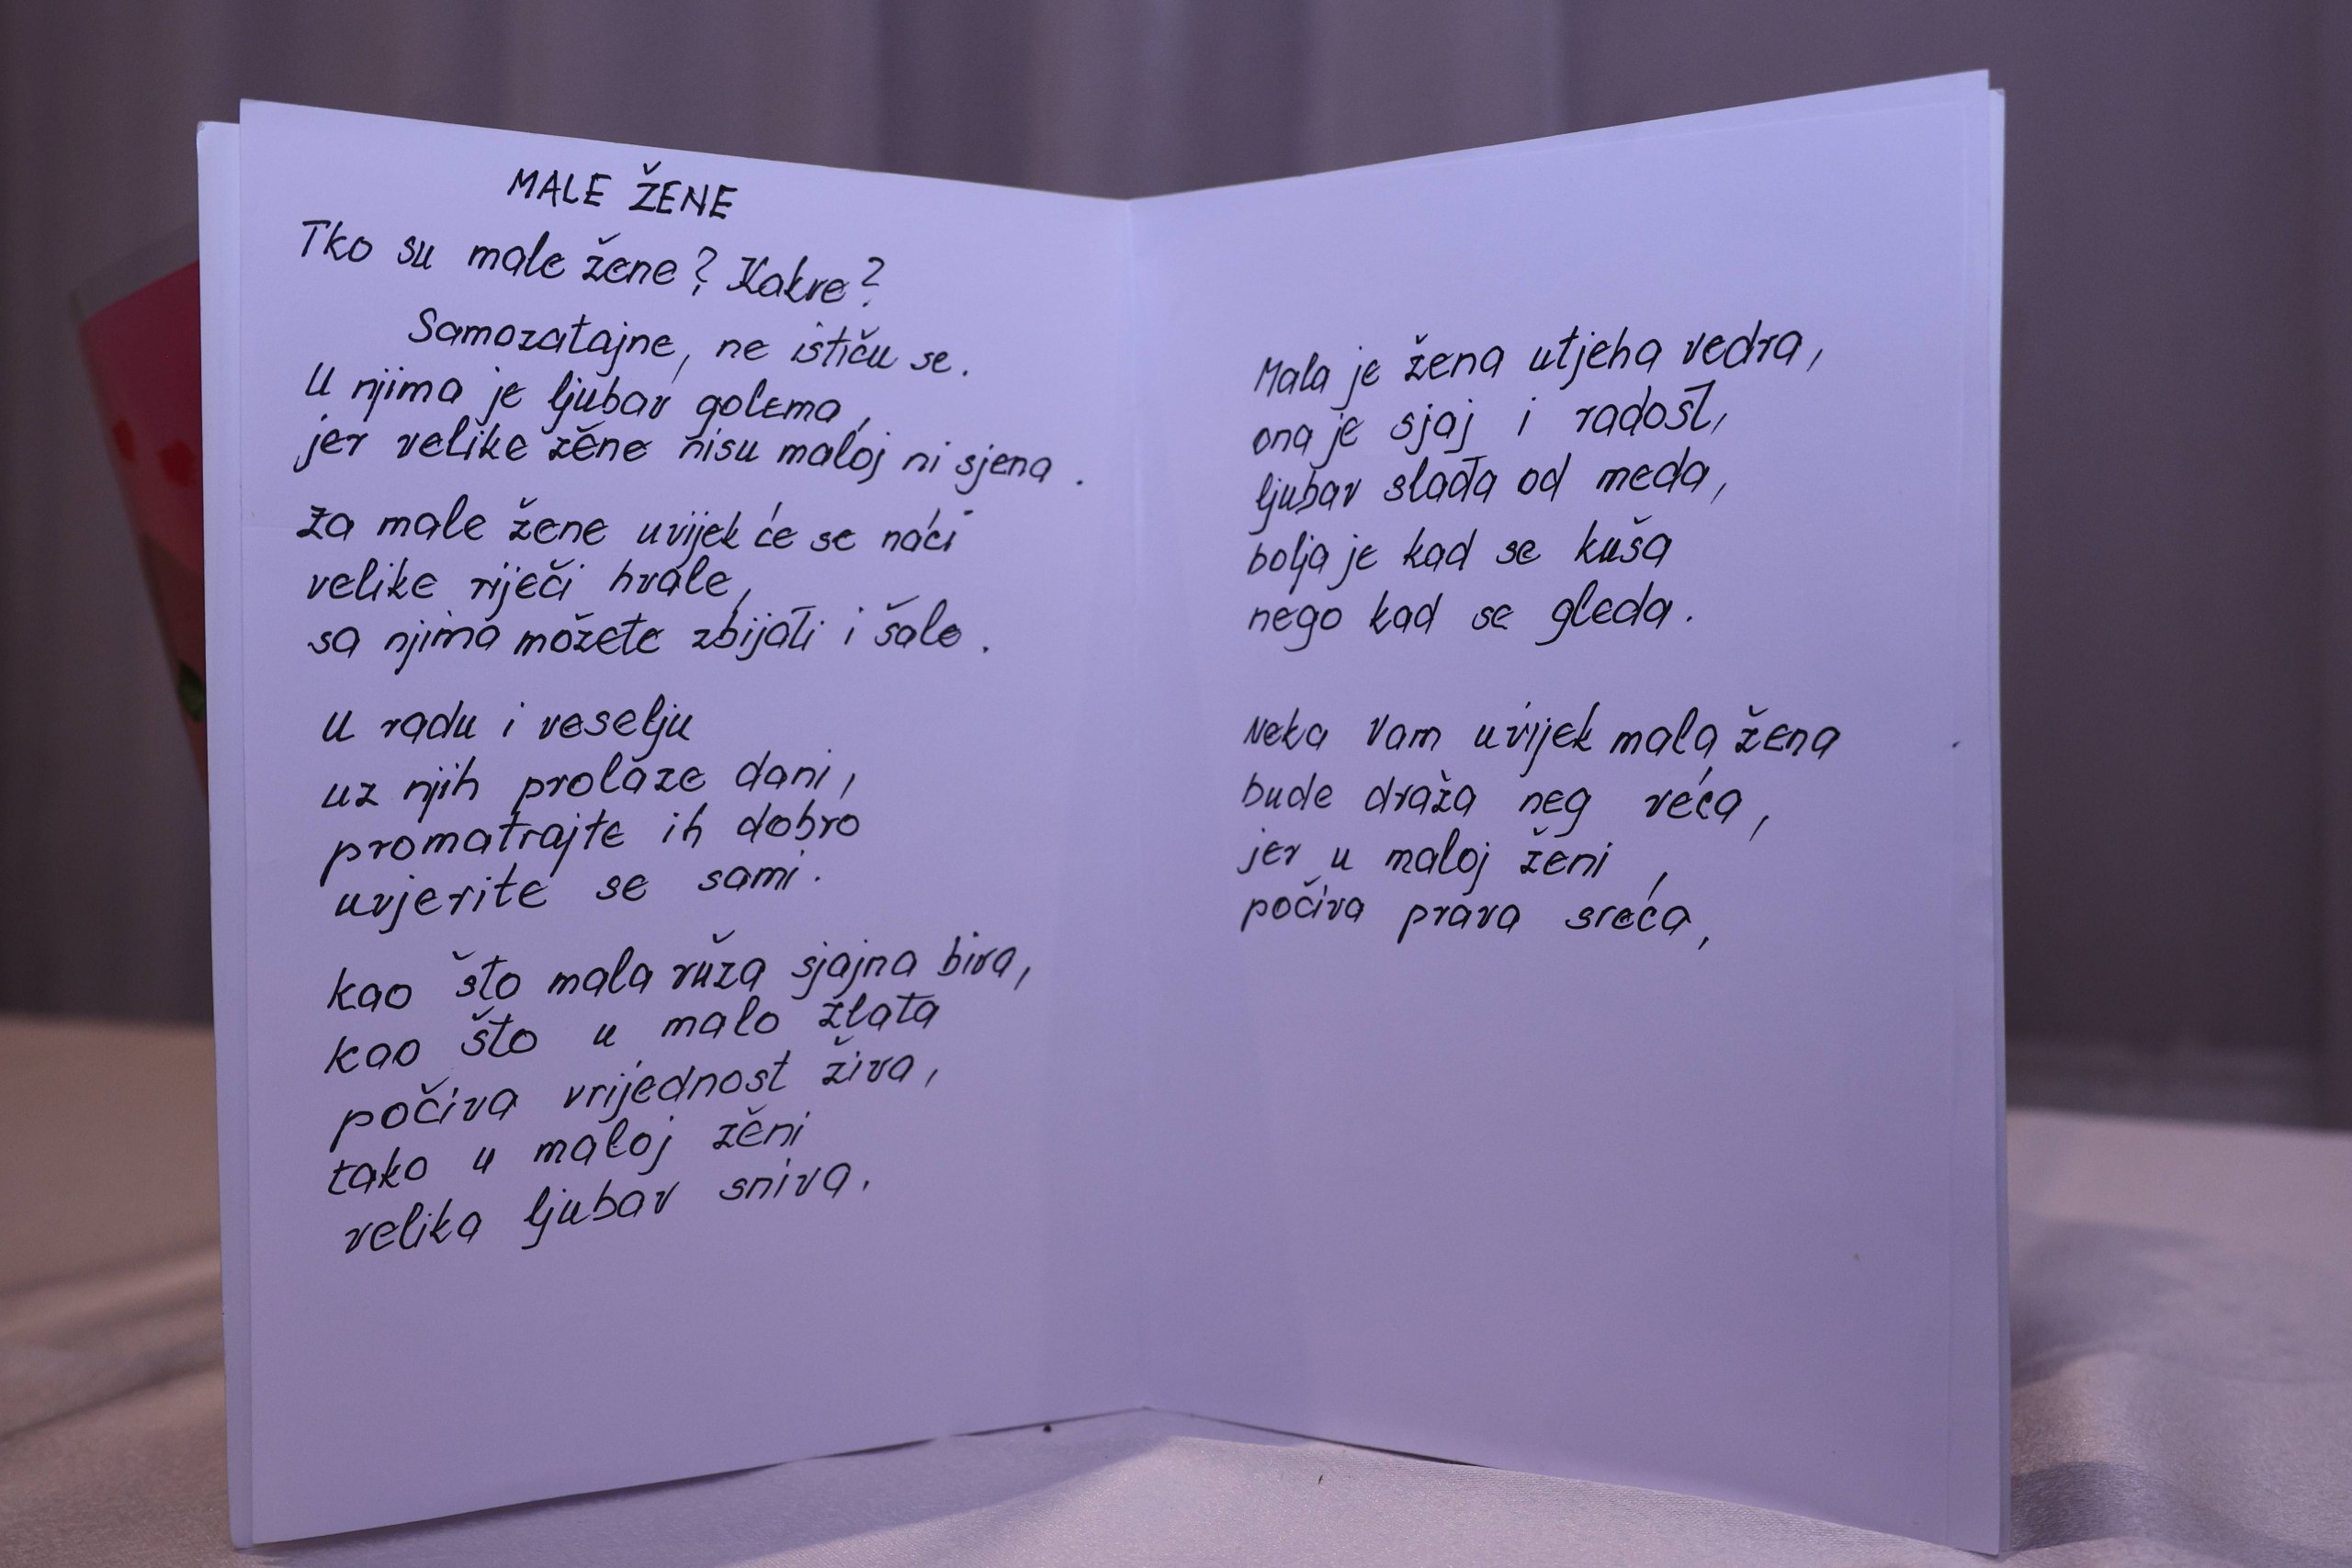 MALE ŽENE
Tko su male žene? Kakve?
Samozatajne, ne ističu se.
U njima je ljubav golema,
jer velike žene nisu maloj ni sjena.
Za male žene uvijek će se naći
velike riječi hvale,
sa njima možete zbijati i šale.
U radu i veselju
uz njih prolaze dani,
promatrajte ih dobro
uvjerite se sami.
kao što mala ruža sjajna biva,
kao što u malo zlata
počiva vrijednost živa,
tako u maloj ženi
velika ljubav sniva.
Mala je žena utjeha vedra,
ona je sjaj i radost,
ljubav slađa od meda,
bolja je kad se kuša
nego kad se gleda.
Neka Vam uvijek mala žena
bude draža neg veća,
jer u maloj ženi,
počiva prava sreća,